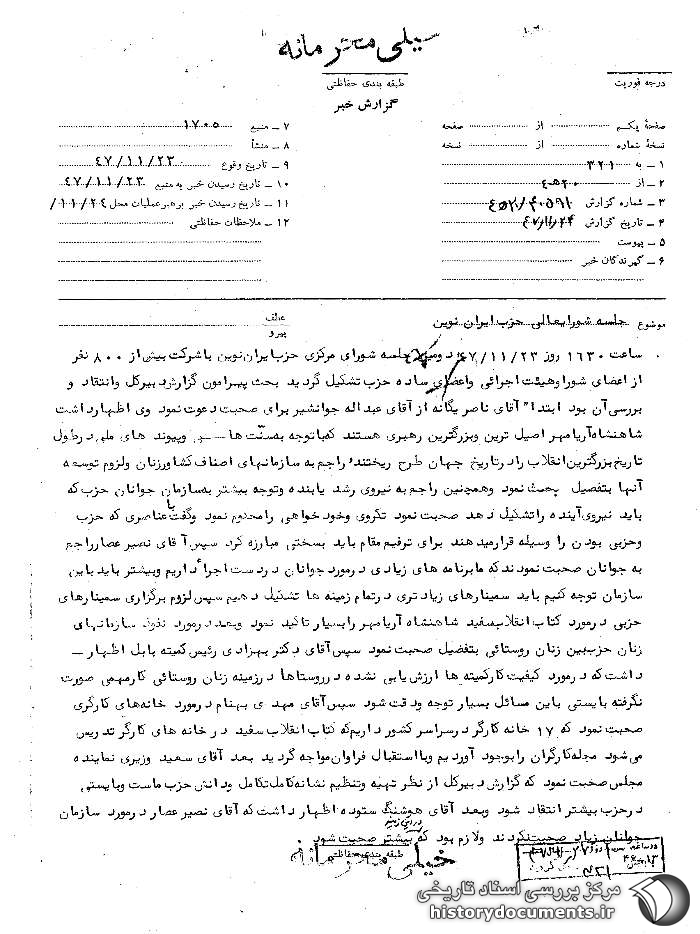 خیلی محرمانه
درجه فوریت
طبقه بندی حفاظتی
گزارش خبر
صفحهٔ یکم از صفحه
نسخهٔ شماره از نسخه
۱ ــ به ۳۲۱
۲ ــ از ۲۰ ه‍ ۴
۳ ــ شماره گزارش
۴ ــ تاریخ گزارش ۴۷/۱۱/۲۴
۵ ــ پیوست
۶ ــ گیرندگان خبر
۷ ــ منبع ۱۷۰۵
۸ ــ منشأ
۹ ــ تاریخ وقوع ۴۷/۱۱/۲۳
۱۰ ــ تاریخ رسیدن خبر به منبع ۴۷/۱۱/۲۳
۱۱ ــ تاریخ رسیدن خبر برهبر عملیات محل ۱۱/۲۴/
۱۲ ــ ملاحظات حفاظتی
موضوع جلسه شورایعالی حزب ایران نوین
عطف
پیرو
ساعت ۱۶۳۰ روز ۴۷/۱۱/۲۳ دومین جلسه شورای مرکزی حزب ایران نوین با شرکت بیش از ۸۰۰ نفر
از اعضای شورا وهیئت اجرائی واعضای ساده حزب تشکیل گردید بحث پیرامون گزارش دبیرکل وانتقاد و
بررسی آن بود ابتدا" آقای ناصر یگانه از آقای عبداله جوانشیر برای صحبت دعوت نمود وی اظهارداشت
شاهنشاه آریامهر اصیل ترین وبزرگترین رهبری هستند که باتوجه به سنّت ها ــ وپیوند های ملی درطول
تاریخ بزرگترین انقلاب رادرتاریخ جهان طرح ریختند راجع به سازمانهای اصناف کشاورزنان ولزوم توسعه
آنها بتفصیل بحث نمود وهمچنین راجع به نیروی رشد یابنده وتوجه بیشتر به سازمان جوانان حزب که
باید نیروی آینده راتشکیل دهد صحبت نمود تکروی وخود خواهی رامحکوم نمود وگفت با عناصری که حزب
وحزبی بودن را وسیله قرارمیدهند برای ترفیع مقام باید بسختی مبارزه کرد سپس آقای نصیر عصارراجع
به جوانان صحبت نمودند که مابرنامه های زیادی درمورد جوانان دردست اجرا داریم وبیشتر باید باین
سازمان توجه کنیم باید سمینارهای زیادتری درتمام زمینه ها تشکیل دهیم سپس لزوم برگزاری سمینارهای
حزبی درمورد کتاب انقلاب سفید شاهنشاه آریامهر رابسیار تاکید نمود وبعد درمورد نفوذ سازمانهای
زنان حزب بین زنان روستائی بتفصیل صحبت نمود سپس آقای دکتر بهزادی رئیس کمیته بابل اظهار ــ
داشت که درمورد کیفیت کارکمیته ها ارزش یابی نشده درروستاها درزمینه زنان روستائی کارمهمی صورت
نگرفته بایستی باین مسائل بسیار توجه ودقت شود سپس آقای مهدی بهنام درمورد خانه های کارگری
صحبت نمود که ۱۷ خانه کارگر درسراسر کشور داریم که کتاب انقلاب سفید درخانه های کارگر تدریس
می شود مجله کارگران رابوجود آوردیم وبااستقبال فراوان مواجه گردید بعد آقای سعید وزیری نماینده
مجلس صحبت نمود که گزارش دبیرکل از نظر تهیه وتنظیم نشانه کامل تکامل ودانش حزب ماست وبایستی
درحزب بیشتر انتقاد شود وبعد آقای هوشنگ ستوده اظهار داشت که آقای نصیر عصار درمورد سازمان
جوانان زیاد صحبت نکردند ولازم بود که در این زمینه بیشتر صحبت شود
طبقه بندی حفاظتی
خیلی محرمانه
مرکز بررسی اسناد تاریخی
historydocuments.ir